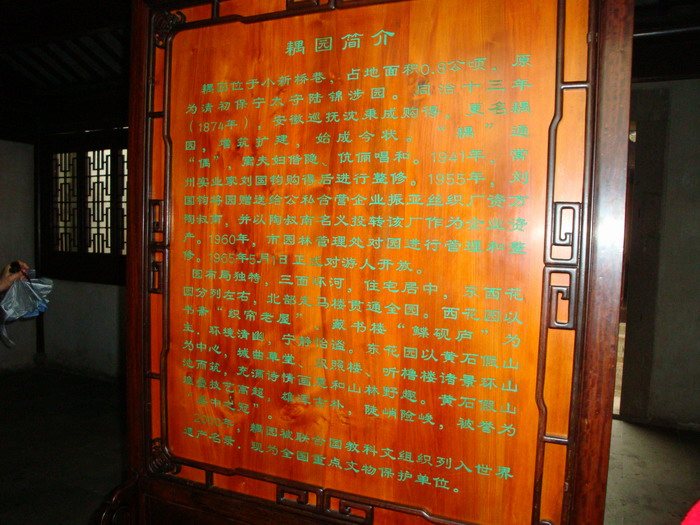 耦园简介
耦园位于小新桥巷，占地面积0.8公顷。原
为清初保宁太守陆锦涉园。同治十三年
（1874年），安徽巡抚沈秉成购得，更名耦
园，增筑扩建，始成今状。“耦”通
“偶”，寓夫妇偕隐、伉俪唱和。1941年，常
州实业家刘国钧购得后进行整修。1955年，刘
国钧将园赠送给公私合营企业振亚丝织厂资方
陶叔南，并以陶叔南名义投转该厂作为企业资
产。1960年，市园林管理处对园进行管理和整
修。1965年5月1日正式对游人开放。
园布局独特，三面环河，住宅居中，东西花
园分列左右，北部走马楼贯通全园。西花园以
书斋“织帘老屋”、藏书楼“鲽砚庐”为
主，环境清幽，宁静怡谧。东花园以黄石假山
为中心，城曲草堂、双照楼、听橹楼诸景环山
池而筑，充满诗情画意和山林野趣。黄石假山
堆叠技艺高超，雄浑古朴，陡峭险峻，被誉为
“吴中之冠”。
2000年，耦园被联合国教科文组织列入世界
遗产名录，现为全国重点文物保护单位。